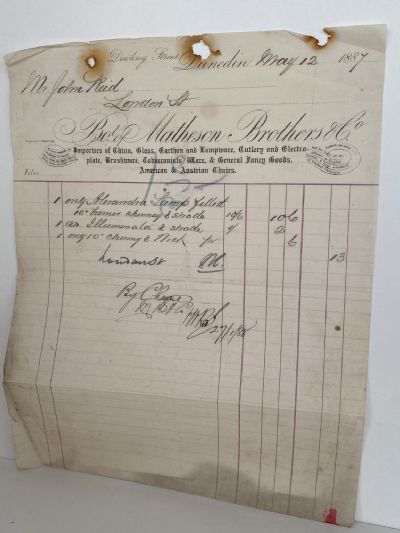 Dowling Street, Dunedin May 12 1887
Mr John Reid
London St
Bot of Matheson Brothers & Co
Importers of China, Glass, Earthen and Lampware, Cutlery and Electro-
plate, Brushware, Tobacconists' Ware, & General Fancy Goods,
American & Austrian Chairs.
Folio
1 only Alexandra Lamp fitted
10 burner chimney & shade 10/6 10 6
1 Illuminator & shade 2
1 only 10 chimney & Wick 6
London St 13
By Cheque